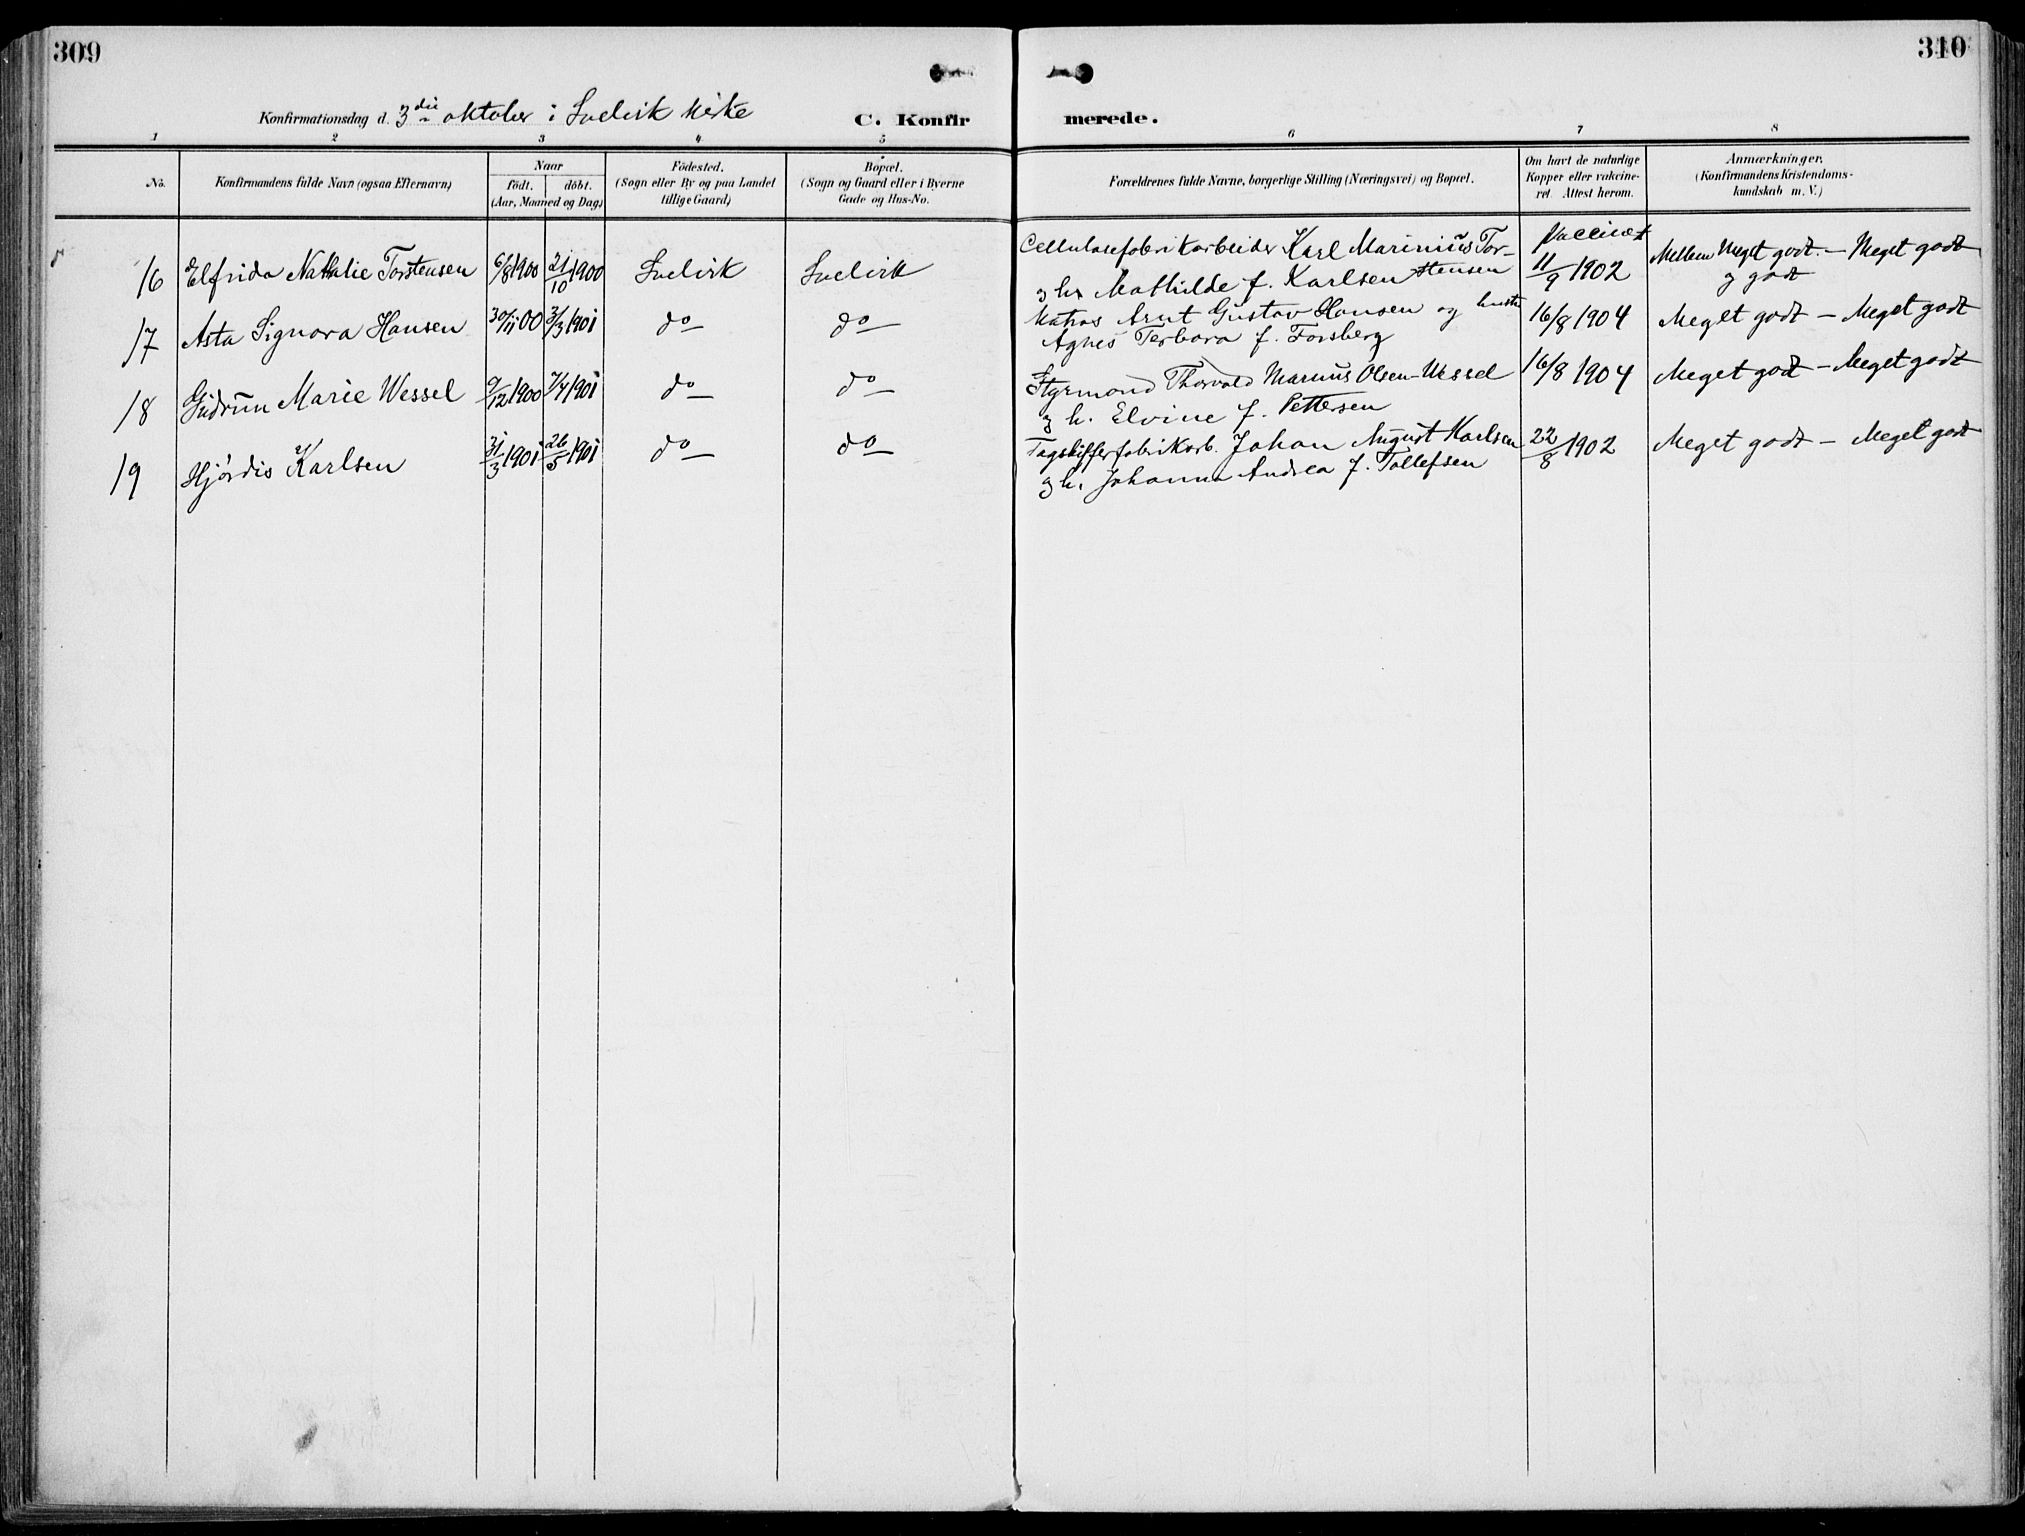 309
310
Konfirmationsdag d. 3die oktober i Svelvik kirke
C. Konfir
merede.
1 2 3 4 5 6 7 8
No.
Konfirmandens fulde Navn (ogsaa Efternavn)
Naar
født. døbt.
(Aar, Maaned og Dag)
Födested.
(Sogn eller By og paa Landet
tillige Gaard)
Bopæl.
(Sogn og Gaard eller i Byerne
Gade og Hus-No.
Forældrenes fulde Navne, borgerlige Stilling (Næringsvei) og Bopæl.
Om havt de naturlige
Kopper eller vakcine-
ret. Attest herom.
Anmærkninger.
(Konfirmandens Kristendoms-
kundskab m. V.)
16 Elfrida Nathalie Torstensen 6/8 1900 21/10 1900 Svelvik Svelvik Cellulosefabrikarbeider Karl Marinius Tor- Vaccineret Mellem Meget godt. — Meget godt
stensen og h. Mathilde f. Karlsen 11/9 1902 og godt
17 Asta Signora Hansen 30/11 00 3/3 1901 do do Matros Arnt Gustav Hansen og hustr 16/8 1904 Meget godt — Meget godt
Agnes Terbara f. Forsberg
18 Gudrun Marie Wessel 9/12 1900 7/4 1901 do do Styrmand Thorvald Marius Olsen-Wessel 16/8 1904 Meget godt — Meget godt
og h. Elvine f. Pettersen
19 Hjørdis Karlsen 31/3 1901 26/5 1901 do do Tagskifferfabrikarb. Johan August Karlsen 22/8 1902 Meget godt — Meget godt
og h. Johanna Andrea f. Tollefsen